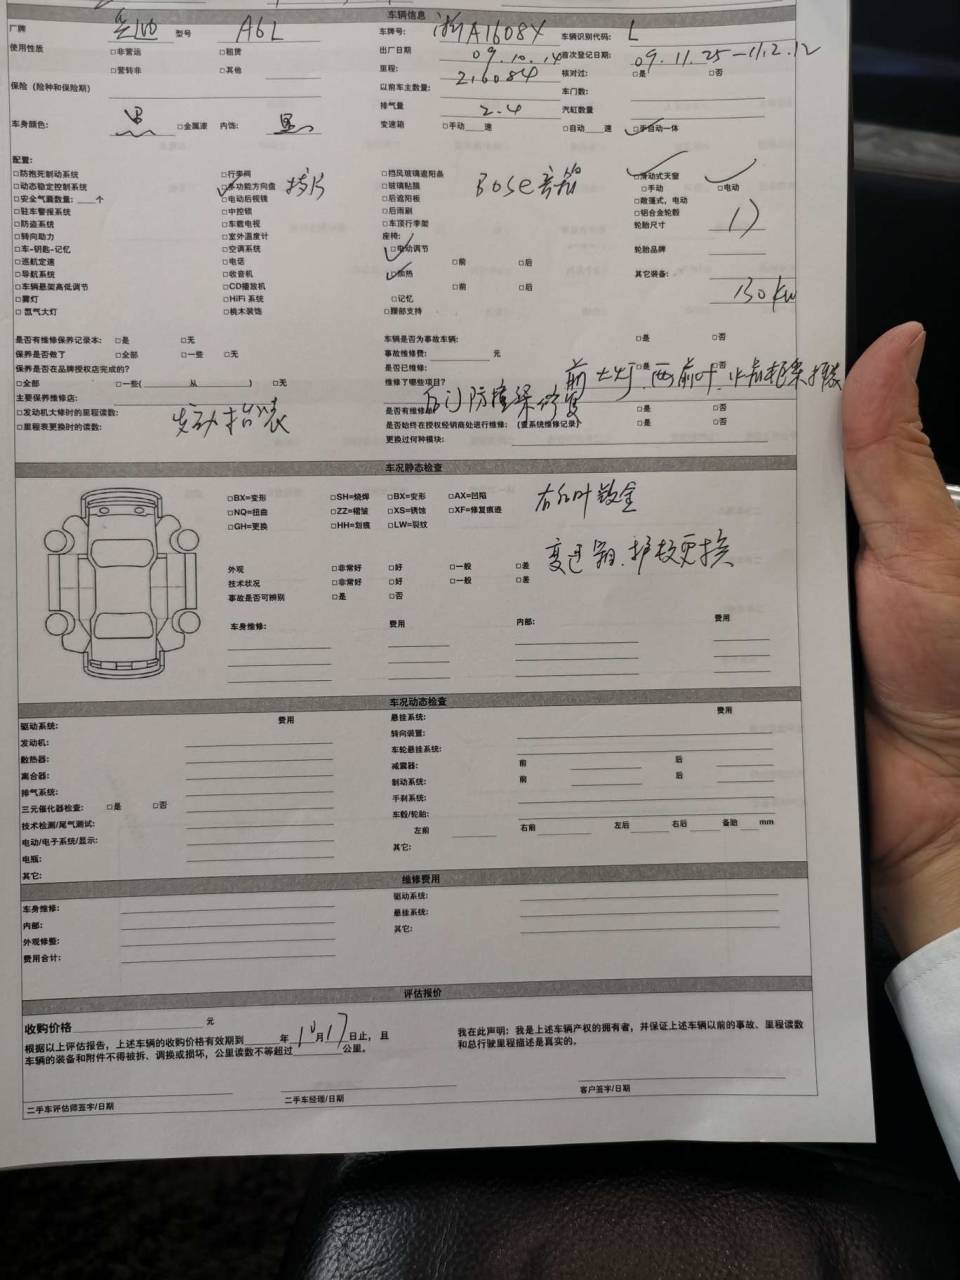 车辆信息
厂牌 奥迪 型号 A6L 车牌号: 浙A1608X 车辆识别代码: L
使用性质 □非营运 □租赁 出厂日期 09.10.14 首次登记日期: 09.11.25-11.2.12
□营转非 □其他 里程: 216084 核对过: □是 □否
保险（险种和保险期） 以前车主数量: 车门数:
排气量 2.4 汽缸数量
车身颜色: 黑 □金属漆 内饰: 黑 变速箱 □手动 速 □自动 速 □手自动一体
配置:
□防抱死制动系统 □行李箱 □挡风玻璃遮阳条 □滑动式天窗
□动态稳定控制系统 □多功能方向盘 拨片 □玻璃贴膜 Bose音箱 □手动 □电动
□安全气囊数量: 个 □电动后视镜 □后遮阳板 □敞篷式，电动
□驻车警报系统 □中控锁 □后雨刷 □铝合金轮毂
□防盗系统 □车载电视 □车顶行李架 轮胎尺寸 17
□转向助力 □室外温度计 座椅:
□车-钥匙-记忆 □空调系统 □电动调节 轮胎品牌
□巡航定速 □电话 □前 □后
□导航系统 □收音机 □加热 其它装备:
□车辆悬架高低调节 □CD播放机 □前 □后 130kw
□雾灯 □HiFi 系统 □记忆
□氙气大灯 □桃木装饰 □腰部支持
是否有维修保养记录本: □是 □无 车辆是否为事故车辆: □是 □否
保养是否做了 □全部 □一些 □无 事故维修费: 元
保养是否在品牌授权店完成的? 是否已维修: □是 □否
□全部 □一些( 从 ) □无 维修了哪些项目? 前大灯.两前叶.
主要保养维修店: 后门防撞条修复
□发动机大修时的里程读数: 发动 是否有维修单 □是 □否
□里程表更换时的读数: 是否始终在授权经销商处进行维修: (查系统维修记录) □是 □否
更换过何种模块:
车况静态检查
□BX=变形 □SH=烧焊 □BX=变形 □AX=凹陷 右后叶钣金
□NQ=扭曲 □ZZ=褶皱 □XS=锈蚀 □XF=修复痕迹
□GH=更换 □HH=划痕 □LW=裂纹
变速箱.护板更换
外观 □非常好 □好 □一般 □差
技术状况 □非常好 □好 □一般 □差
事故是否可辨别 □是 □否
车身维修: 费用 内部: 费用
车况动态检查
驱动系统: 费用 悬挂系统: 费用
发动机: 转向装置:
散热器: 车轮悬挂系统:
离合器: 减震器: 前 后
排气系统: 制动系统: 前 后
三元催化器检查: □是 □否 手刹系统:
技术检测/尾气测试: 车毂/轮胎:
电动/电子系统/显示: 左前 右前 左后 右后 备胎 mm
电瓶: 其它:
其它:
维修费用
车身维修: 驱动系统:
内部: 悬挂系统:
外观修整: 其它:
费用合计:
评估报价
收购价格 元
根据以上评估报告，上述车辆的收购价格有效期到 年10月17日止，且
车辆的装备和附件不得被拆、调换或损坏，公里读数不等超过 公里。
我在此声明：我是上述车辆产权的拥有者，并保证上述车辆以前的事故、里程读数
和总行驶里程描述是真实的。
二手车评估师签字/日期 二手车经理/日期 客户签字/日期